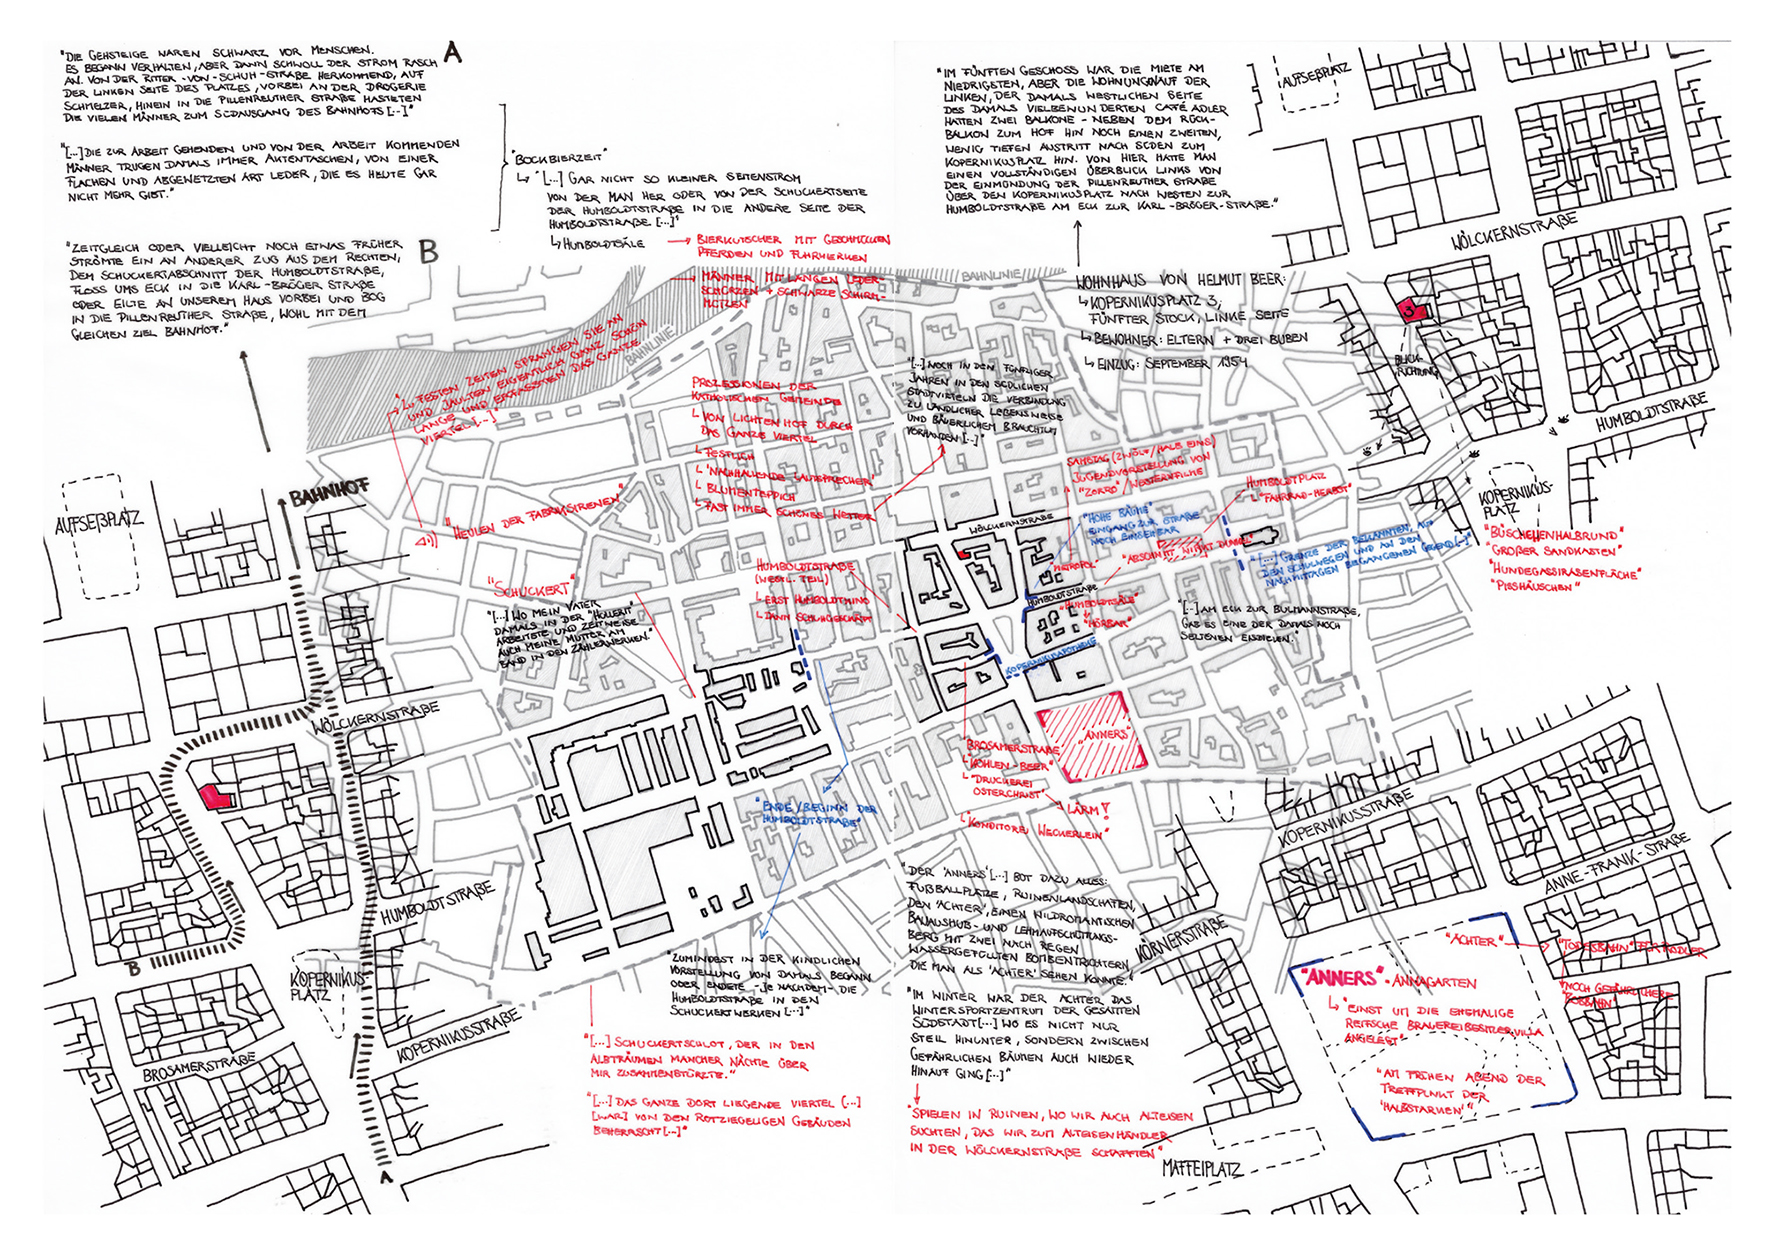 "DIE GEHSTEIGE WAREN SCHWARZ VOR MENSCHEN.
ES BEGANN VERHALTEN, ABER DANN SCHWOLL DER STROM RASCH
AN. VON DER RITTER-VON-SCHUH-STRAßE HERKOMMEND, AUF
DER LINKEN SEITE DES PLATZES, VORBEI AN DER DROGERIE
SCHMELZER, HINEIN IN DIE PILLENREUTHER STRAßE HASTETEN
DIE VIELEN MÄNNER ZUM SÜDAUSGANG DES BAHNHOFS [...]"
A
"[...] DIE ZUR ARBEIT GEHENDEN UND VON DER ARBEIT KOMMENDEN
MÄNNER TRUGEN DAMALS IMMER AKTENTASCHEN, VON EINER
FLACHEN UND ABGEWETZTEN ART LEDER, DIE ES HEUTE GAR
NICHT MEHR GIBT."
"ZEITGLEICH ODER VIELLEICHT NOCH ETWAS FRÜHER
STRÖMTE EIN AN ANDERER ZUG AUS DEM RECHTEN,
DEM SCHUCKERTABSCHNITT DER HUMBOLDTSTRAßE,
FLOSS UMS ECK IN DIE KARL-BRÖGER STRAßE
ODER EILTE AN UNSEREM HAUS VORBEI UND BOG
IN DIE PILLENREUTHER STRAßE, WOHL MIT DEM
GLEICHEN ZIEL BAHNHOF."
B
"BOCKBIERZEIT"
"[...] GAR NICHT SO KLEINER SEITENSTROM
VON DER MAN HER ODER VON DER SCHUCKERTSEITE
DER HUMBOLDTSTRAßE IN DIE ANDERE SEITE DER
HUMBOLDTSTRAßE. [...]"
HUMBOLDTSÄLE
BIERKUTSCHER MIT GESCHMÜCKTEN
PFERDEN UND FUHRWERKEN
MÄNNER MIT LANGEN LEDER-
SCHÜRZEN + SCHWARZE SCHIRM-
MÜTZEN
"IM FÜNFTEN GESCHOSS WAR DIE MIETE AM
NIEDRIGSTEN, ABER DIE WOHNUNGEN AUF DER
LINKEN, DER DAMALS WESTLICHEN SEITE
DES DAMALS VIELBEWUNDERTEN CAFÉ ADLER
HATTEN ZWEI BALKONE - NEBEN DEM RÜCK-
BALKON ZUM HOF HIN NOCH EINEN ZWEITEN,
WENIG TIEFEN AUSTRITT NACH SÜDEN ZUM
KOPERNIKUSPLATZ HIN. VON HIER HATTE MAN
EINEN VOLLSTÄNDIGEN ÜBERBLICK LINKS VON
DER EINMÜNDUNG DER PILLENREUTHER STRAßE
ÜBER DEN KOPERNIKUSPLATZ NACH WESTEN ZUR
HUMBOLDTSTRAßE AM ECK ZUR KARL-BRÖGER-STRAßE."
WOHNHAUS VON HELMUT BEER:
KOPERNIKUSPLATZ 3,
FÜNFTER STOCK, LINKE SEITE
BEWOHNER: ELTERN + DREI BUBEN
EINZUG: SEPTEMBER 1954
AUFSEßPLATZ
WÖLCKERNSTRAßE
3
BLICK-
RICHTUNG
HUMBOLDTSTRAßE
KOPERNIKUS-
PLATZ
"BÜSCHELENHALBRUND"
"GROßER SANDKASTEN"
"HUNDEGASSIRASENFLÄCHE"
"PISSHÄUSCHEN"
BAHNLINIE
BAHNLINIE
"ZU FESTEN ZEITEN SPRANGEN SIE AN
UND JAULTEN EIGENTLICH GANZ SCHÖN
LANGE UND ERFASSTEN DAS GANZE
VIERTEL [...]"
"HEULEN DER FABRIKSIRENEN"
PROZESSIONEN DER
KATHOLISCHEN GEMEINDE
VON LICHTENHOF DURCH
DAS GANZE VIERTEL
FESTLICH
"NACHHALLENDE LAUTSPRECHER"
BLUMENTEPPICH
FAST IMMER SCHÖNES WETTER
"[...] NOCH IN DEN FÜNFZIGER
JAHREN IN DEN SÜDLICHEN
STADTVIERTELN DIE VERBINDUNG
ZU LÄNDLICHER LEBENSWEISE
UND BÄUERLICHEM BRAUCHTUM
VORHANDEN [...]"
SAMSTAG (ZWÖLF/HALB EINS)
JUGENDVORSTELLUNG VON
"ZORRO"/WESTERNFILME
HUMBOLDTPLATZ
"FAHRRAD-HERBST"
"HOHE BÄUME"
EINGANG ZUR STRAßE
NOCH EINSEHBAR
"ABSCHNITT NICHT DUNKEL"
"METROPOL"
"[...] GRENZE DER BEKANNTEN, AUF
DEN SCHULWEGEN UND AN DEN
NACHMITTAGEN BEGANGENEN GEGEND [...]"
WÖLCKERNSTRAßE
HUMBOLDTSTRAßE
"HUMBOLDTSÄLE"
"HÖRBAR"
"[...] AM ECK ZUR BULMANNSTRAßE,
GAB ES EINE DER DAMALS NOCH
SELTENEN EISDIELEN."
HUMBOLDTSTRAßE
(WESTL. TEIL)
ERST HUMBOLDTKINO
DANN SCHUHGESCHÄFT
KOPERNIKUSAPOTHEKE
"SCHUCKERT"
"[...] WO MEIN VATER
DAMALS IN DER "HOLLERIT"
ARBEITETE UND ZEITWEISE
AUCH MEINE MUTTER AM
BAND IN DEN ZÄHLERWERKEN."
"ANNERS"
BROSAMERSTRAßE
"KOHLEN-BEER"
"DRUCKEREI
OSTERCHRIST"
LÄRM!
"KONDITOREI WECKERLEIN"
"ENDE/BEGINN DER
HUMBOLDTSTRAßE"
"ZUMINDEST IN DER KINDLICHEN
VORSTELLUNG VON DAMALS BEGANN
ODER ENDETE - JE NACHDEM - DIE
HUMBOLDTSTRAßE IN DEN
SCHUCKERTWERKEN [...]"
"[...] SCHUCKERTSCHLOT, DER IN DEN
ALBTRÄUMEN MANCHER NÄCHTE ÜBER
MIR ZUSAMMENSTÜRZTE."
"[...] DAS GANZE DORT LIEGENDE VIERTEL [...]
[WAR] VON DEN ROTZIEGELIGEN GEBÄUDEN
BEHERRSCHT [...]"
"DER 'ANNERS' [...] BOT DAZU ALLES:
FUßBALLPLÄTZE, RUINENLANDSCHAFTEN,
DEN 'ACHTER', EINEN WILDROMANTISCHEN
BAUAUSHUB- UND LEHMAUFSCHÜTTUNGS-
BERG MIT ZWEI NACH REGEN
WASSERGEFÜLLTEN BOMBENTRICHTERN
DIE MAN ALS 'ACHTER' SEHEN KONNTE."
"IM WINTER WAR DER ACHTER DAS
WINTERSPORTZENTRUM DER GESAMTEN
SÜDSTADT [...] WO ES NICHT NUR
STEIL HINUNTER, SONDERN ZWISCHEN
GEFÄHRLICHEN BÄUMEN AUCH WIEDER
HINAUF GING [...]"
"SPIELEN IN RUINEN, WO WIR AUCH ALTEISEN
SUCHTEN, DAS WIR ZUM ALTEISENHÄNDLER
IN DER WÖLCKERNSTRAßE SCHAFFTEN"
AUFSEßPLATZ
BAHNHOF
WÖLCKERNSTRAßE
HUMBOLDTSTRAßE
B
KOPERNIKUS-
PLATZ
KOPERNIKUSSTRAßE
BROSAMERSTRAßE
A
KOPERNIKUSSTRAßE
ANNE-FRANK-STRAßE
KÖRNERSTRAßE
"ACHTER"
"TODESBAHN" FÜR RODLER
"NOCH GEFÄHRLICHERE
BOBBAHN"
"ANNERS" - ANNAGARTEN
"EINST UM DIE EHEMALIGE
REIFSCHE BRAUEREIBESITZERVILLA
ANGELEGT"
"AM FRÜHEN ABEND DER
TREFFPUNKT DER
'HALBSTARKEN'"
MAFFEIPLATZ